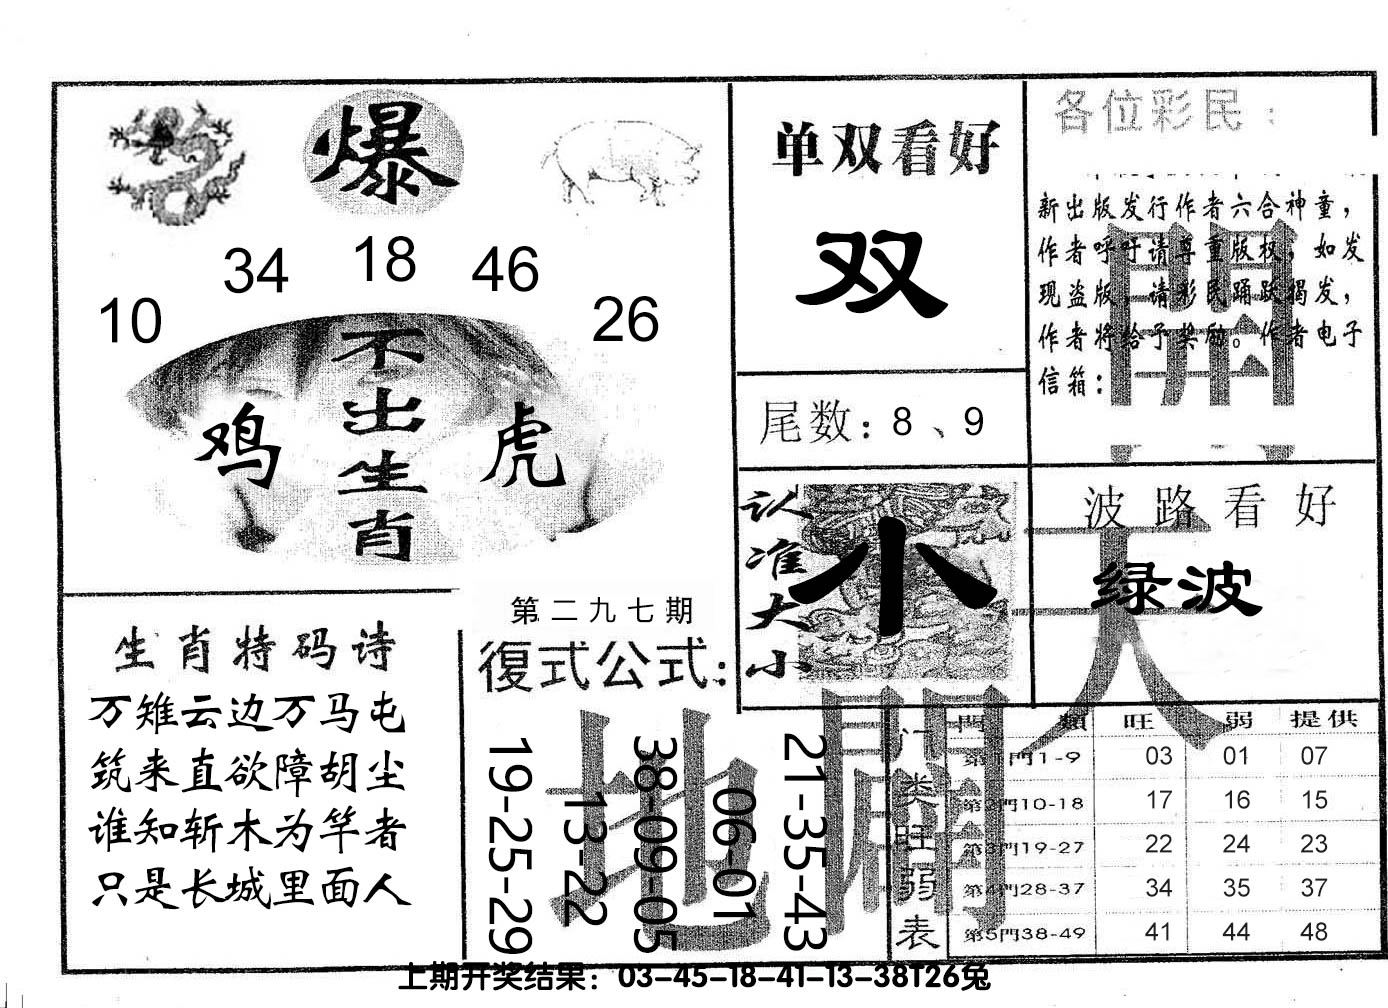 爆
34 18 46
10 26
不出生肖
鸡 虎
单双看好
双
尾数：8、9
各位彩民：
新出版发行作者六合神童，
作者呼吁请尊重版权，如发
现盗版，请彩民踊跃揭发，
作者将给予奖励。作者电子
信箱：
認准大小
小
波路看好
绿波
生肖特码诗
万雉云边万马屯
筑来直欲障胡尘
谁知斩木为竿者
只是长城里面人
第二九七期
復式公式：
19-25-29
13-22
38-09-05
06-01
21-35-43
天
地
開
门类旺弱表
門類 旺 弱 提供
第1門1-9 03 01 07
第2門10-18 17 16 15
第3門19-27 22 24 23
第4門28-37 34 35 37
第5門38-49 41 44 48
上期开奖结果：03-45-18-41-13-38T26兔